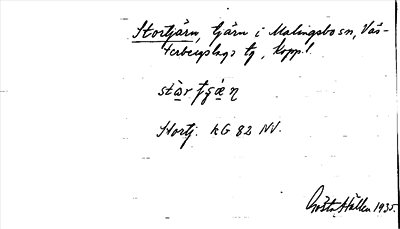 Stortjärn, tjärn i Malingsbo sn, Väs-
terbergslags tg, Kopp. l.
Stortj. kG 82 NV.
Gösta Hallén 1935.